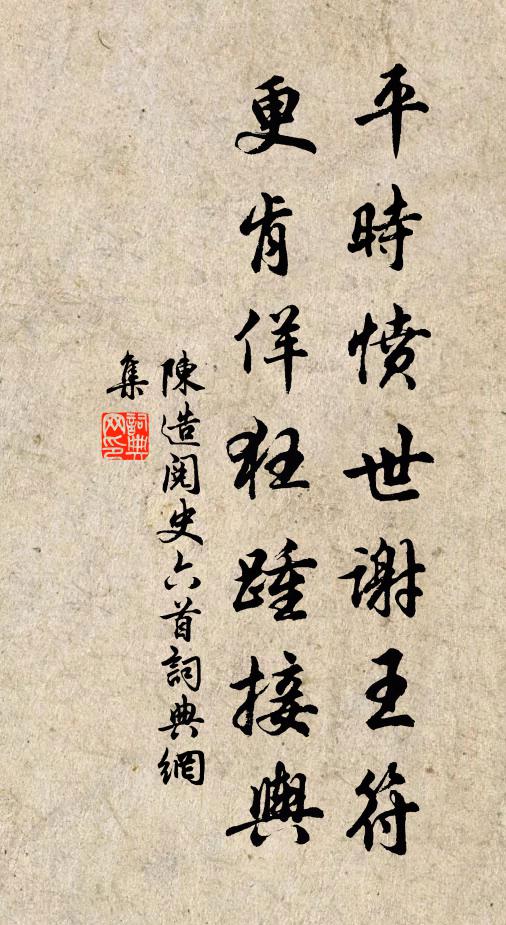 平時憤世謝王符
更肯佯狂踵接輿
陳造閱史六首詞典網
集
詞典網印